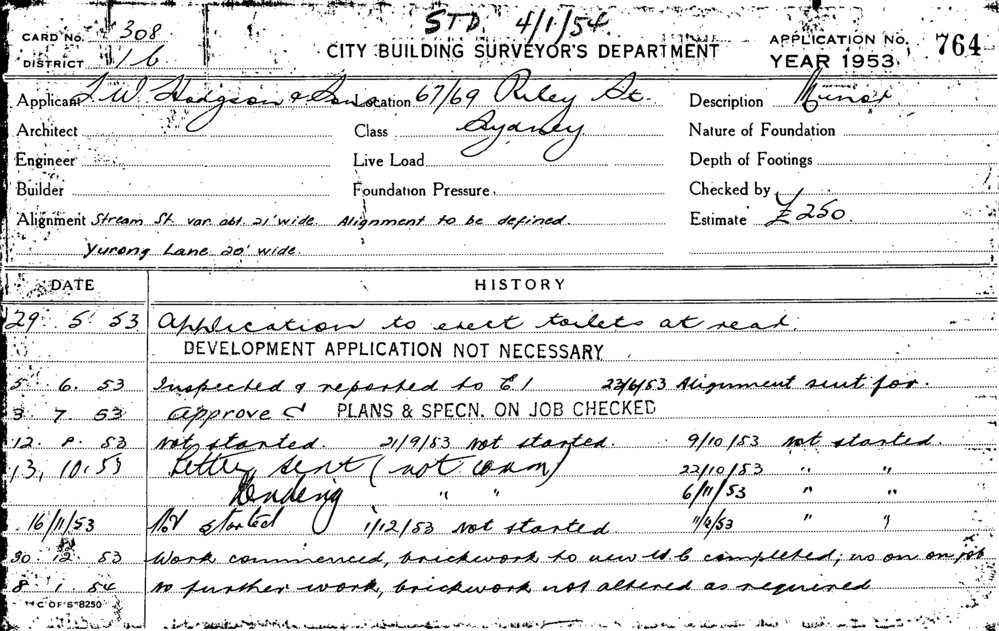 STD. 4/1/54.
CARD No. 308
CITY BUILDING SURVEYOR'S DEPARTMENT
APPLICATION No. 764
DISTRICT 16
YEAR 1953
Applicant J. W. Hodgson & Sons Location 67/69 Riley St. Description Minor
Architect Class Sydney Nature of Foundation
Engineer Live Load Depth of Footings
Builder Foundation Pressure Checked by
Alignment Stream St. var. abt. 21' wide Alignment to be defined Estimate £250
Yurong Lane 20' wide.
DATE HISTORY
29 5 53 Application to erect toilets at rear.
DEVELOPMENT APPLICATION NOT NECESSARY
5 6. 53 Inspected & reported to E1 22/6/53 Alignment sent for.
3 7. 53 Approved PLANS & SPECN. ON JOB CHECKED
12 8 53 Not started. 21/9/53 Not started 9/10/53 Not started.
13, 10.53 Letter sent (not comm) 22/10/53 " "
Pending " " 6/11/53 " "
16/11/53 Not started 1/12/53 Not started. 53 " "
30 12 53 Work commenced, brickwork to new W C completed, no on on job
8 1 54 No further work, brickwork not altered as required
M C OF S 8250